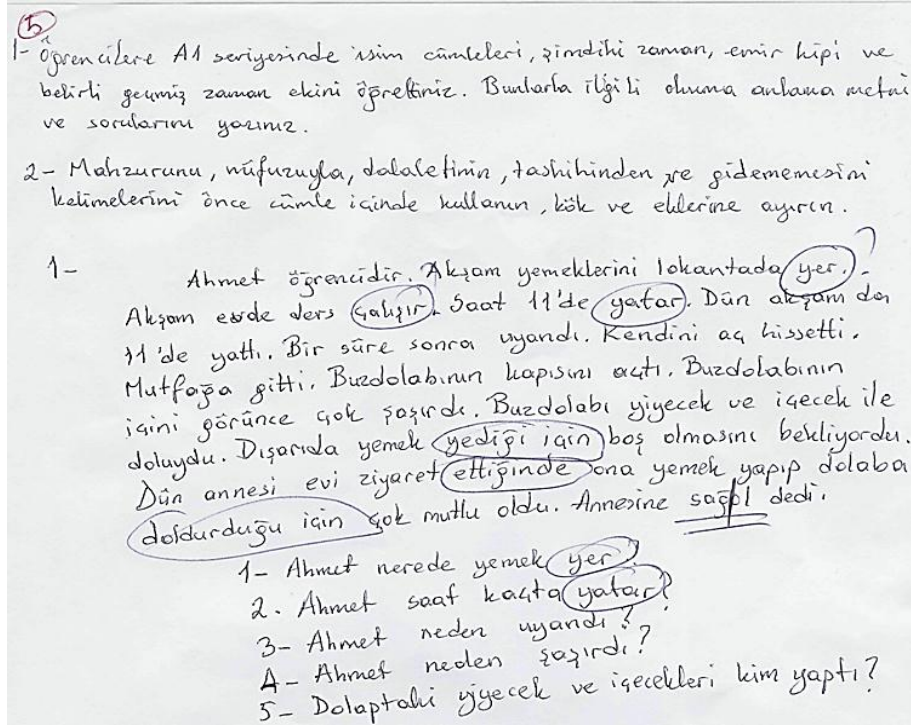 5
1- Öğrencilere A1 seviyesinde isim cümleleri, şimdiki zaman, emir kipi ve
belirli geçmiş zaman ekini öğrettiniz. Bunlarla ilgili okuma anlama metni
ve sorularını yazınız.
2- Mahzurunu, nüfuzuyla, dalaletinin, tashihinden ve gidememesini
kelimelerini önce cümle içinde kullanın, kök ve eklerine ayırın.
1- Ahmet öğrencidir. Akşam yemeklerini lokantada yer. ?
Akşam evde ders çalışır. Saat 11'de yatar. Dün akşam da
11'de yattı. Bir süre sonra uyandı. Kendini aç hissetti.
Mutfağa gitti. Buzdolabının kapısını açtı. Buzdolabının
içini görünce çok şaşırdı. Buzdolabı yiyecek ve içecek ile
doluydu. Dışarıda yemek yediği için boş olmasını bekliyordu.
Dün annesi evi ziyaret ettiğinde ona yemek yapıp dolaba
doldurduğu için çok mutlu oldu. Annesine sağol dedi.
1- Ahmet nerede yemek yer?
2. Ahmet saat kaçta yatar?
3- Ahmet neden uyandı?
4- Ahmet neden şaşırdı?
5- Dolaptaki yiyecek ve içecekleri kim yaptı?